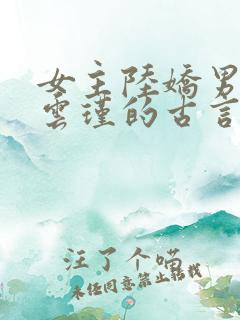 女主陸嬌男
雲瑾的古言
汪了个喵
未经同意禁止转载